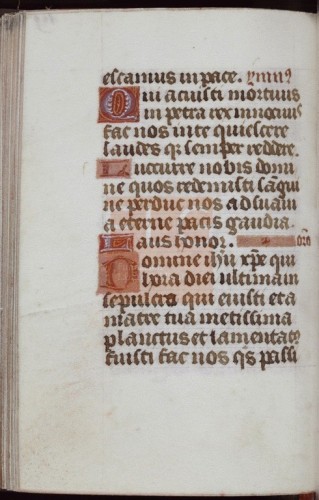 escamus in pace. ymnus
Qui iacuisti mortuus
in petra rex innocuus
fac nos in te quiescere
laudes q; semper reddere.
Succurre nobis domi
ne quos redemisti sāgui
ne perdue nos ad suam
a eterne pacis gaudia.
Laus honor. orō
Domine ihū xp̄e qui
hora diei ultimam
sepulcro qui euisti et a
matre tua metissima
planctus et lamentatō
fuisti fac nos q̄s passi